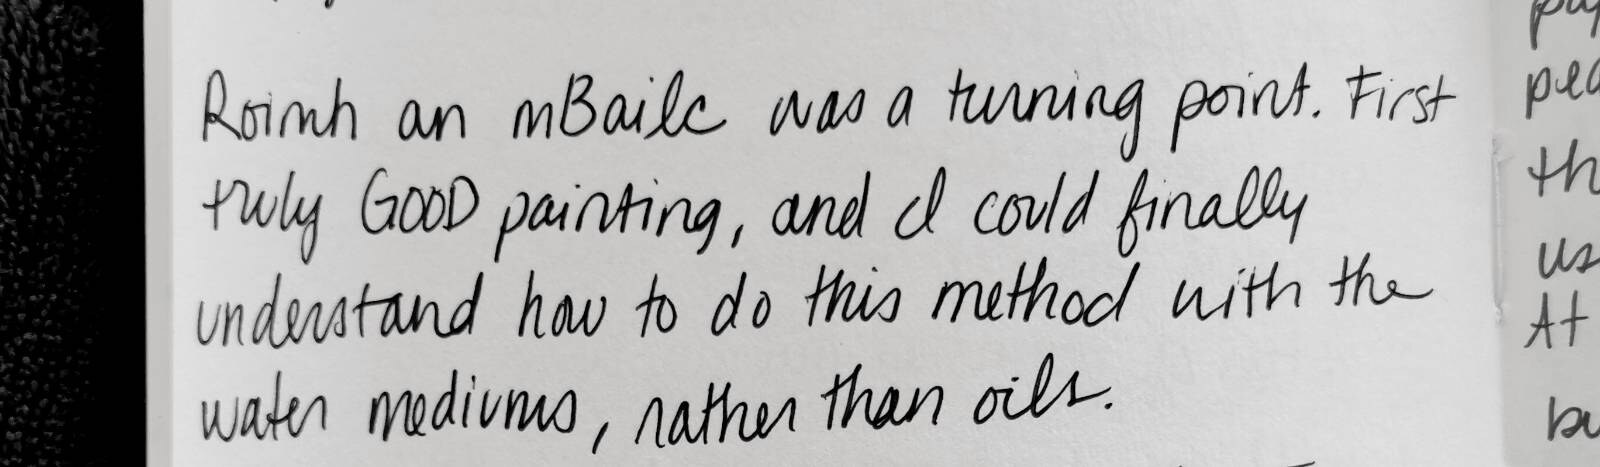 Roimh an mBaile was a turning point. First
truly GOOD painting, and I could finally
understand how to do this method with the
water mediums, rather than oils.
th
us
At